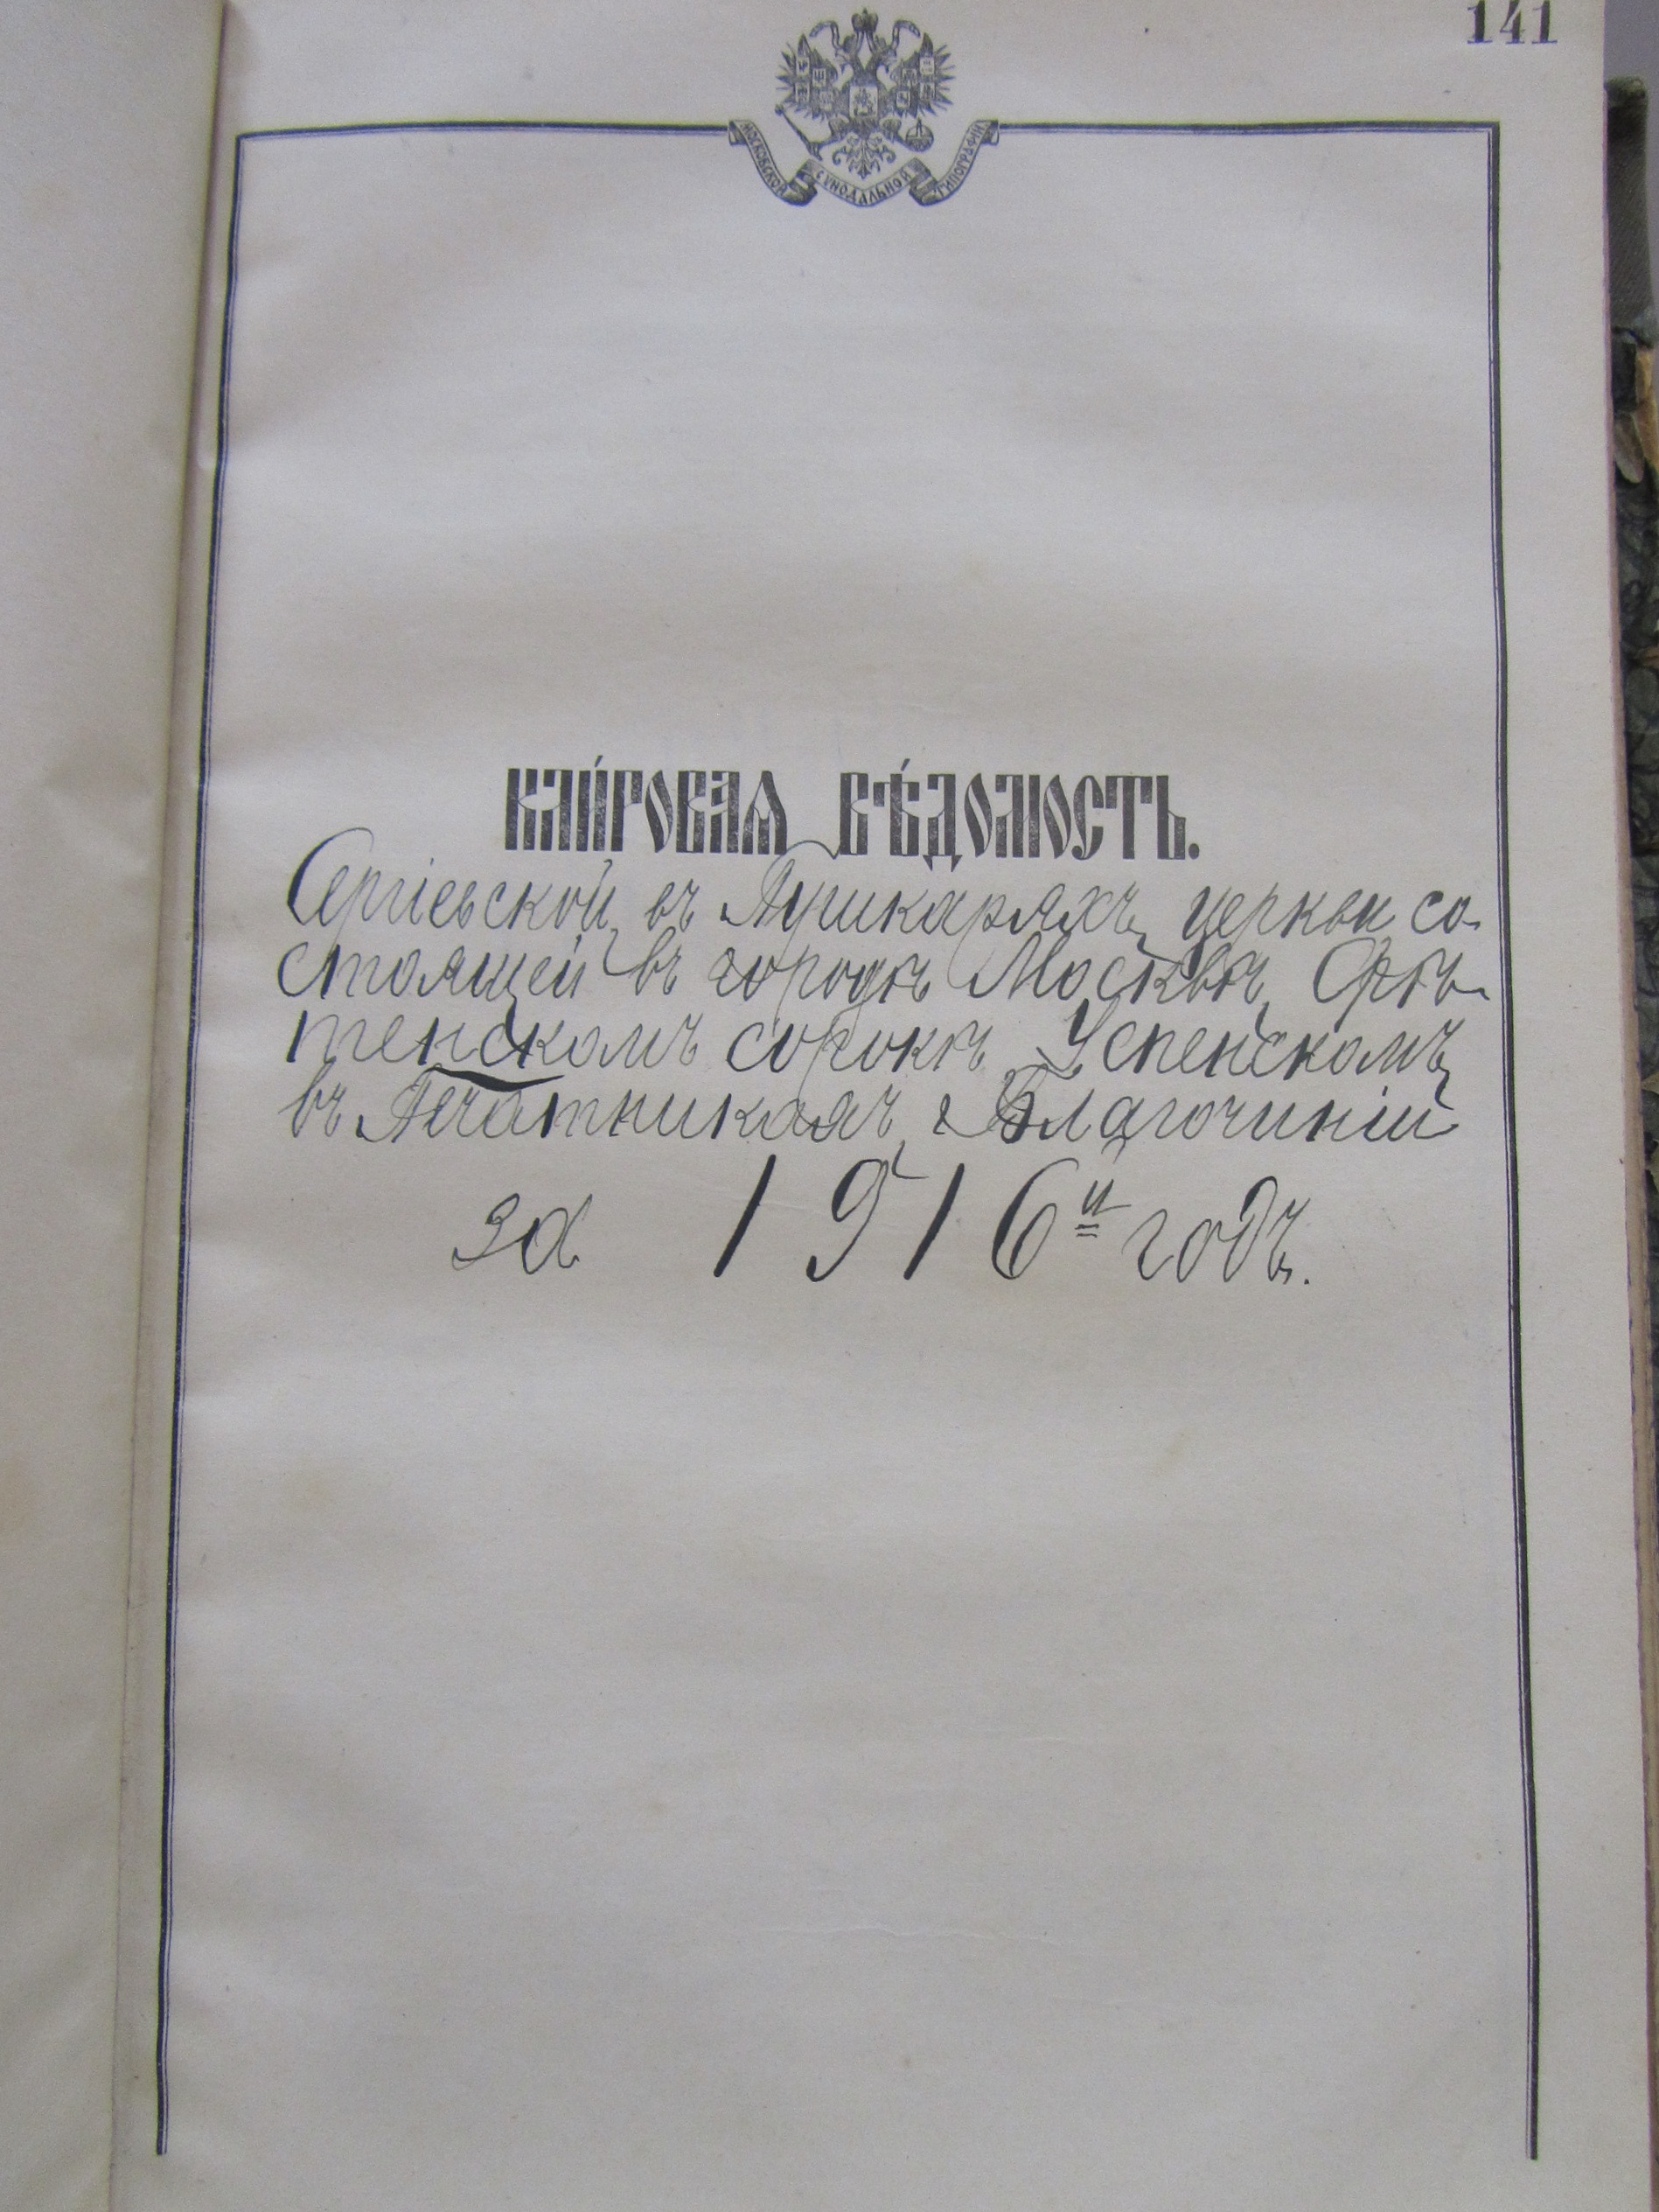 141
МОСКОВСКОЙ СУНОДАЛЬНОЙ ТИПОГРАФІИ
КЛИ́РОВАЯ ВѢ́ДОМОСТЬ.
Сергіевской, въ Пушкаряхъ, церкви со-
стоящей въ городѣ Москвѣ, Срѣ-
тенскомъ сорокѣ, Успенскомъ,
въ Печатникахъ, Благочиніи
за 1916й годъ.